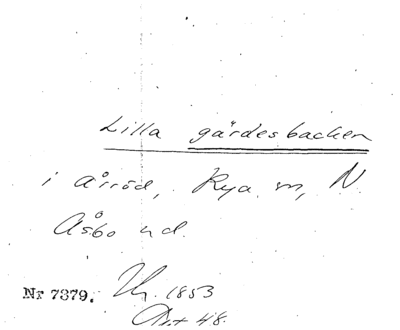 Lilla gärdesbacken
i Årröd, Rya sn, N.
Åsbo hd.
Nr 7379. 1853
Art 48.